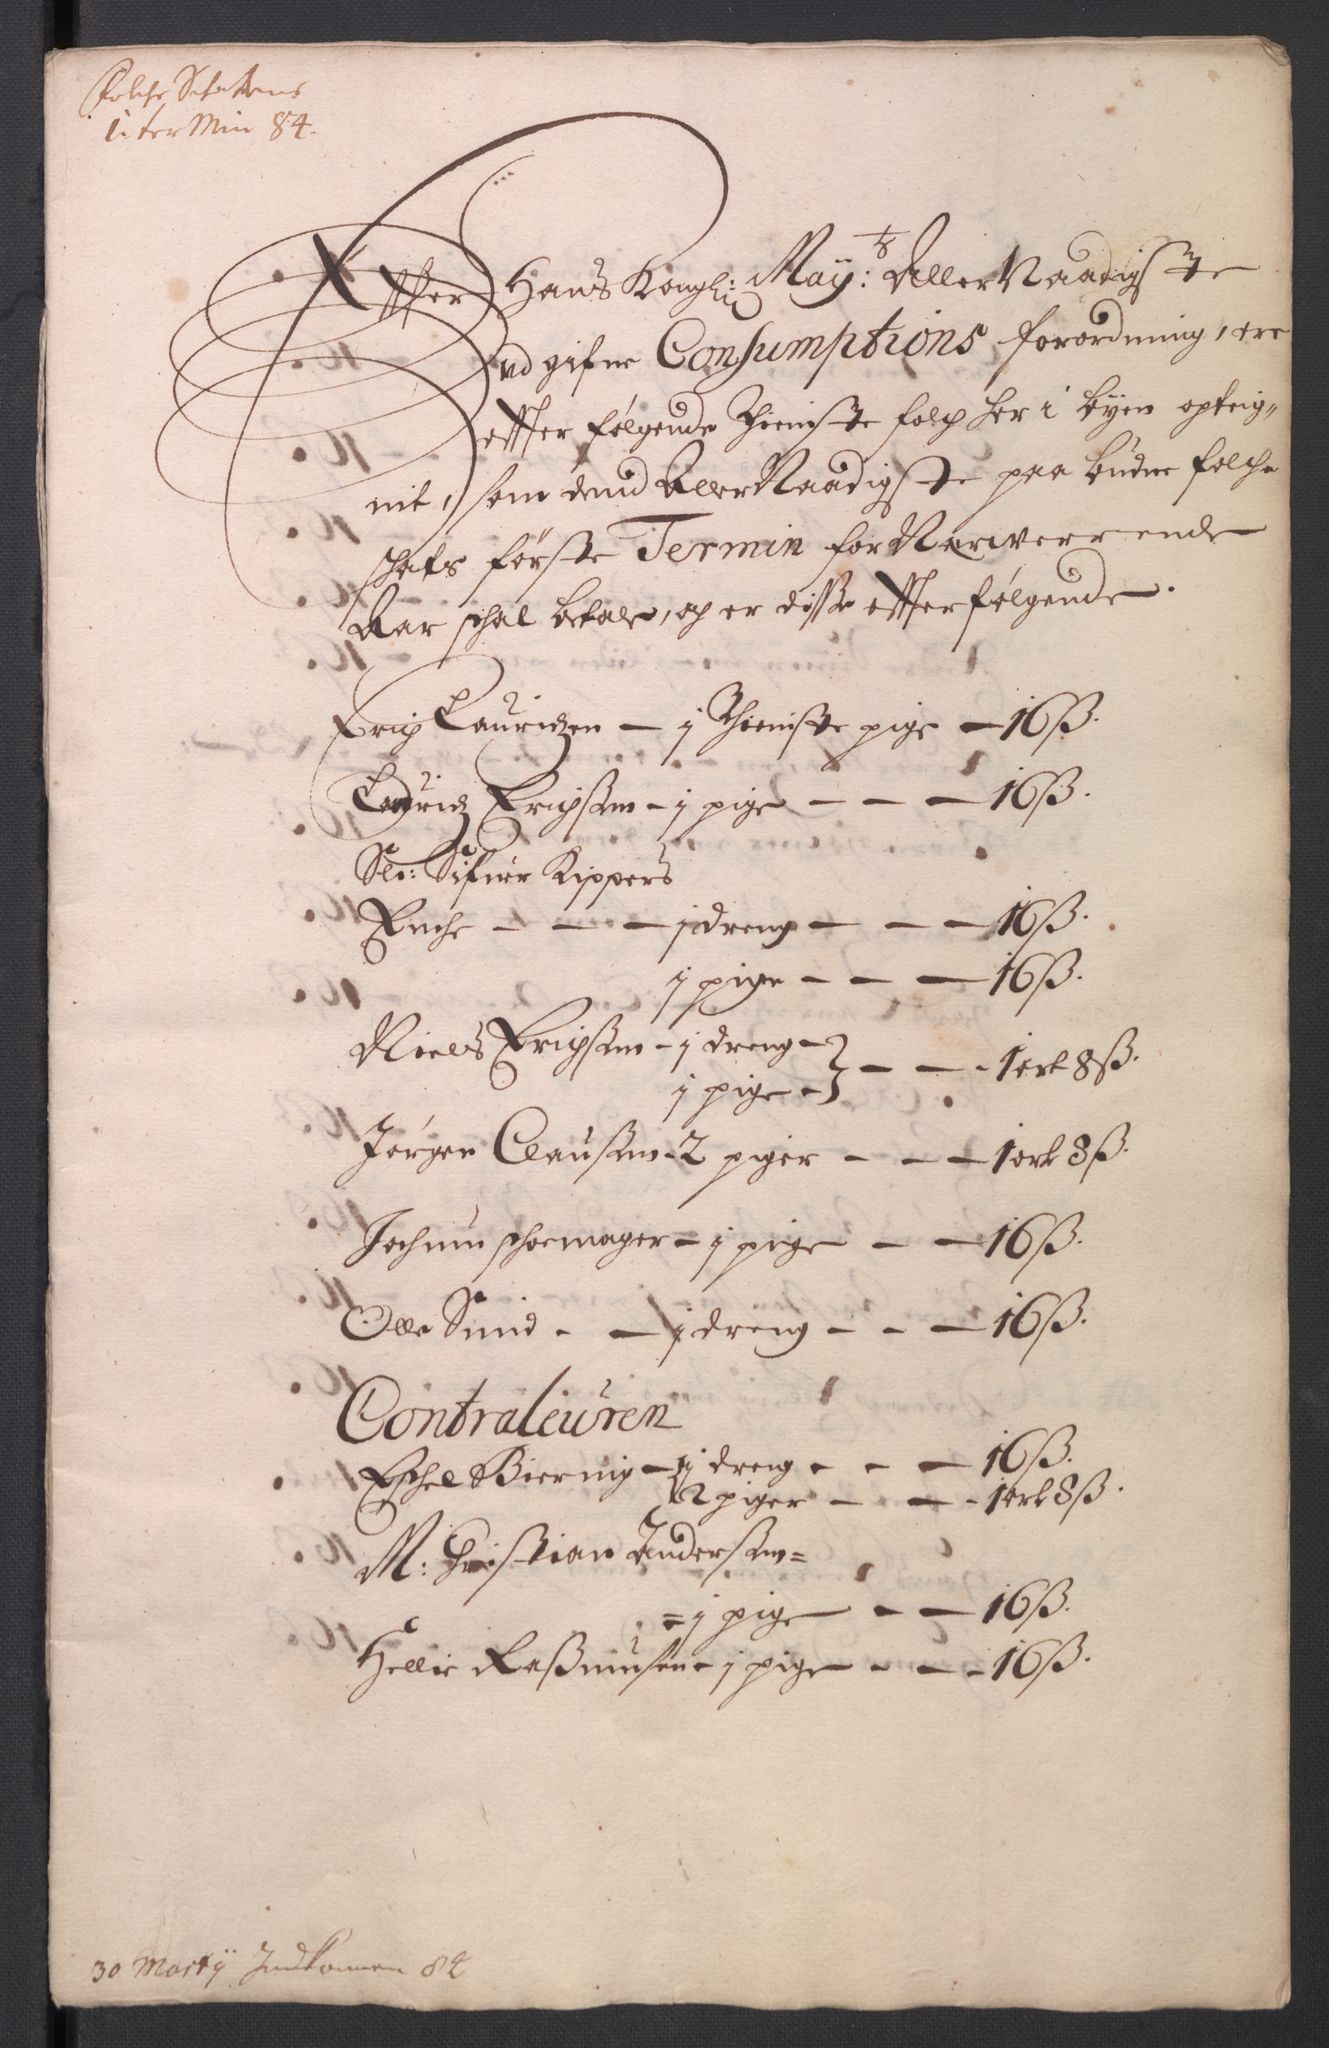 Folche Schatens
1: ter Min 84.
Effter Hans Kongl: May:ts Aller Naadigste
ud gifne Consumptions forordning, ere
effter følgende Thieniste folch her i byen opteig„
nit, som dend Aller Naadigste paa budne folche
schats første Termin for Nerwerrende
Aar schal betale, og er disse effterfølgende.
Erich Lauridzen — j Thieniste pige — 16 ß.
Lauridz Erichsøn — j pige — — — 16 ß.
Sle: Sifuer Kippers
Enche — — — j dreng — — — 16 ß.
j pige — — — 16 ß.
Niels Erichsøn — j dreng —
j pige — } — — - 1 ort 8 ß.
Jørgen Clausøn - 2 piger — — — 1 ort 8 ß.
Jochum schoemager — j pige — — 16 ß.
Olle Smid - — j dreng — - — 16 ß.
Contraleuren
Eschel Biernig — j dreng - - — 16 ß.
2 piger — — - 1 ort 8 ß.
M: Christian Andersøn =
= j pige — — 16 ß.
Hellie Rasmusen - j pige — - - 16 ß.
30 Marty Indkomen 84